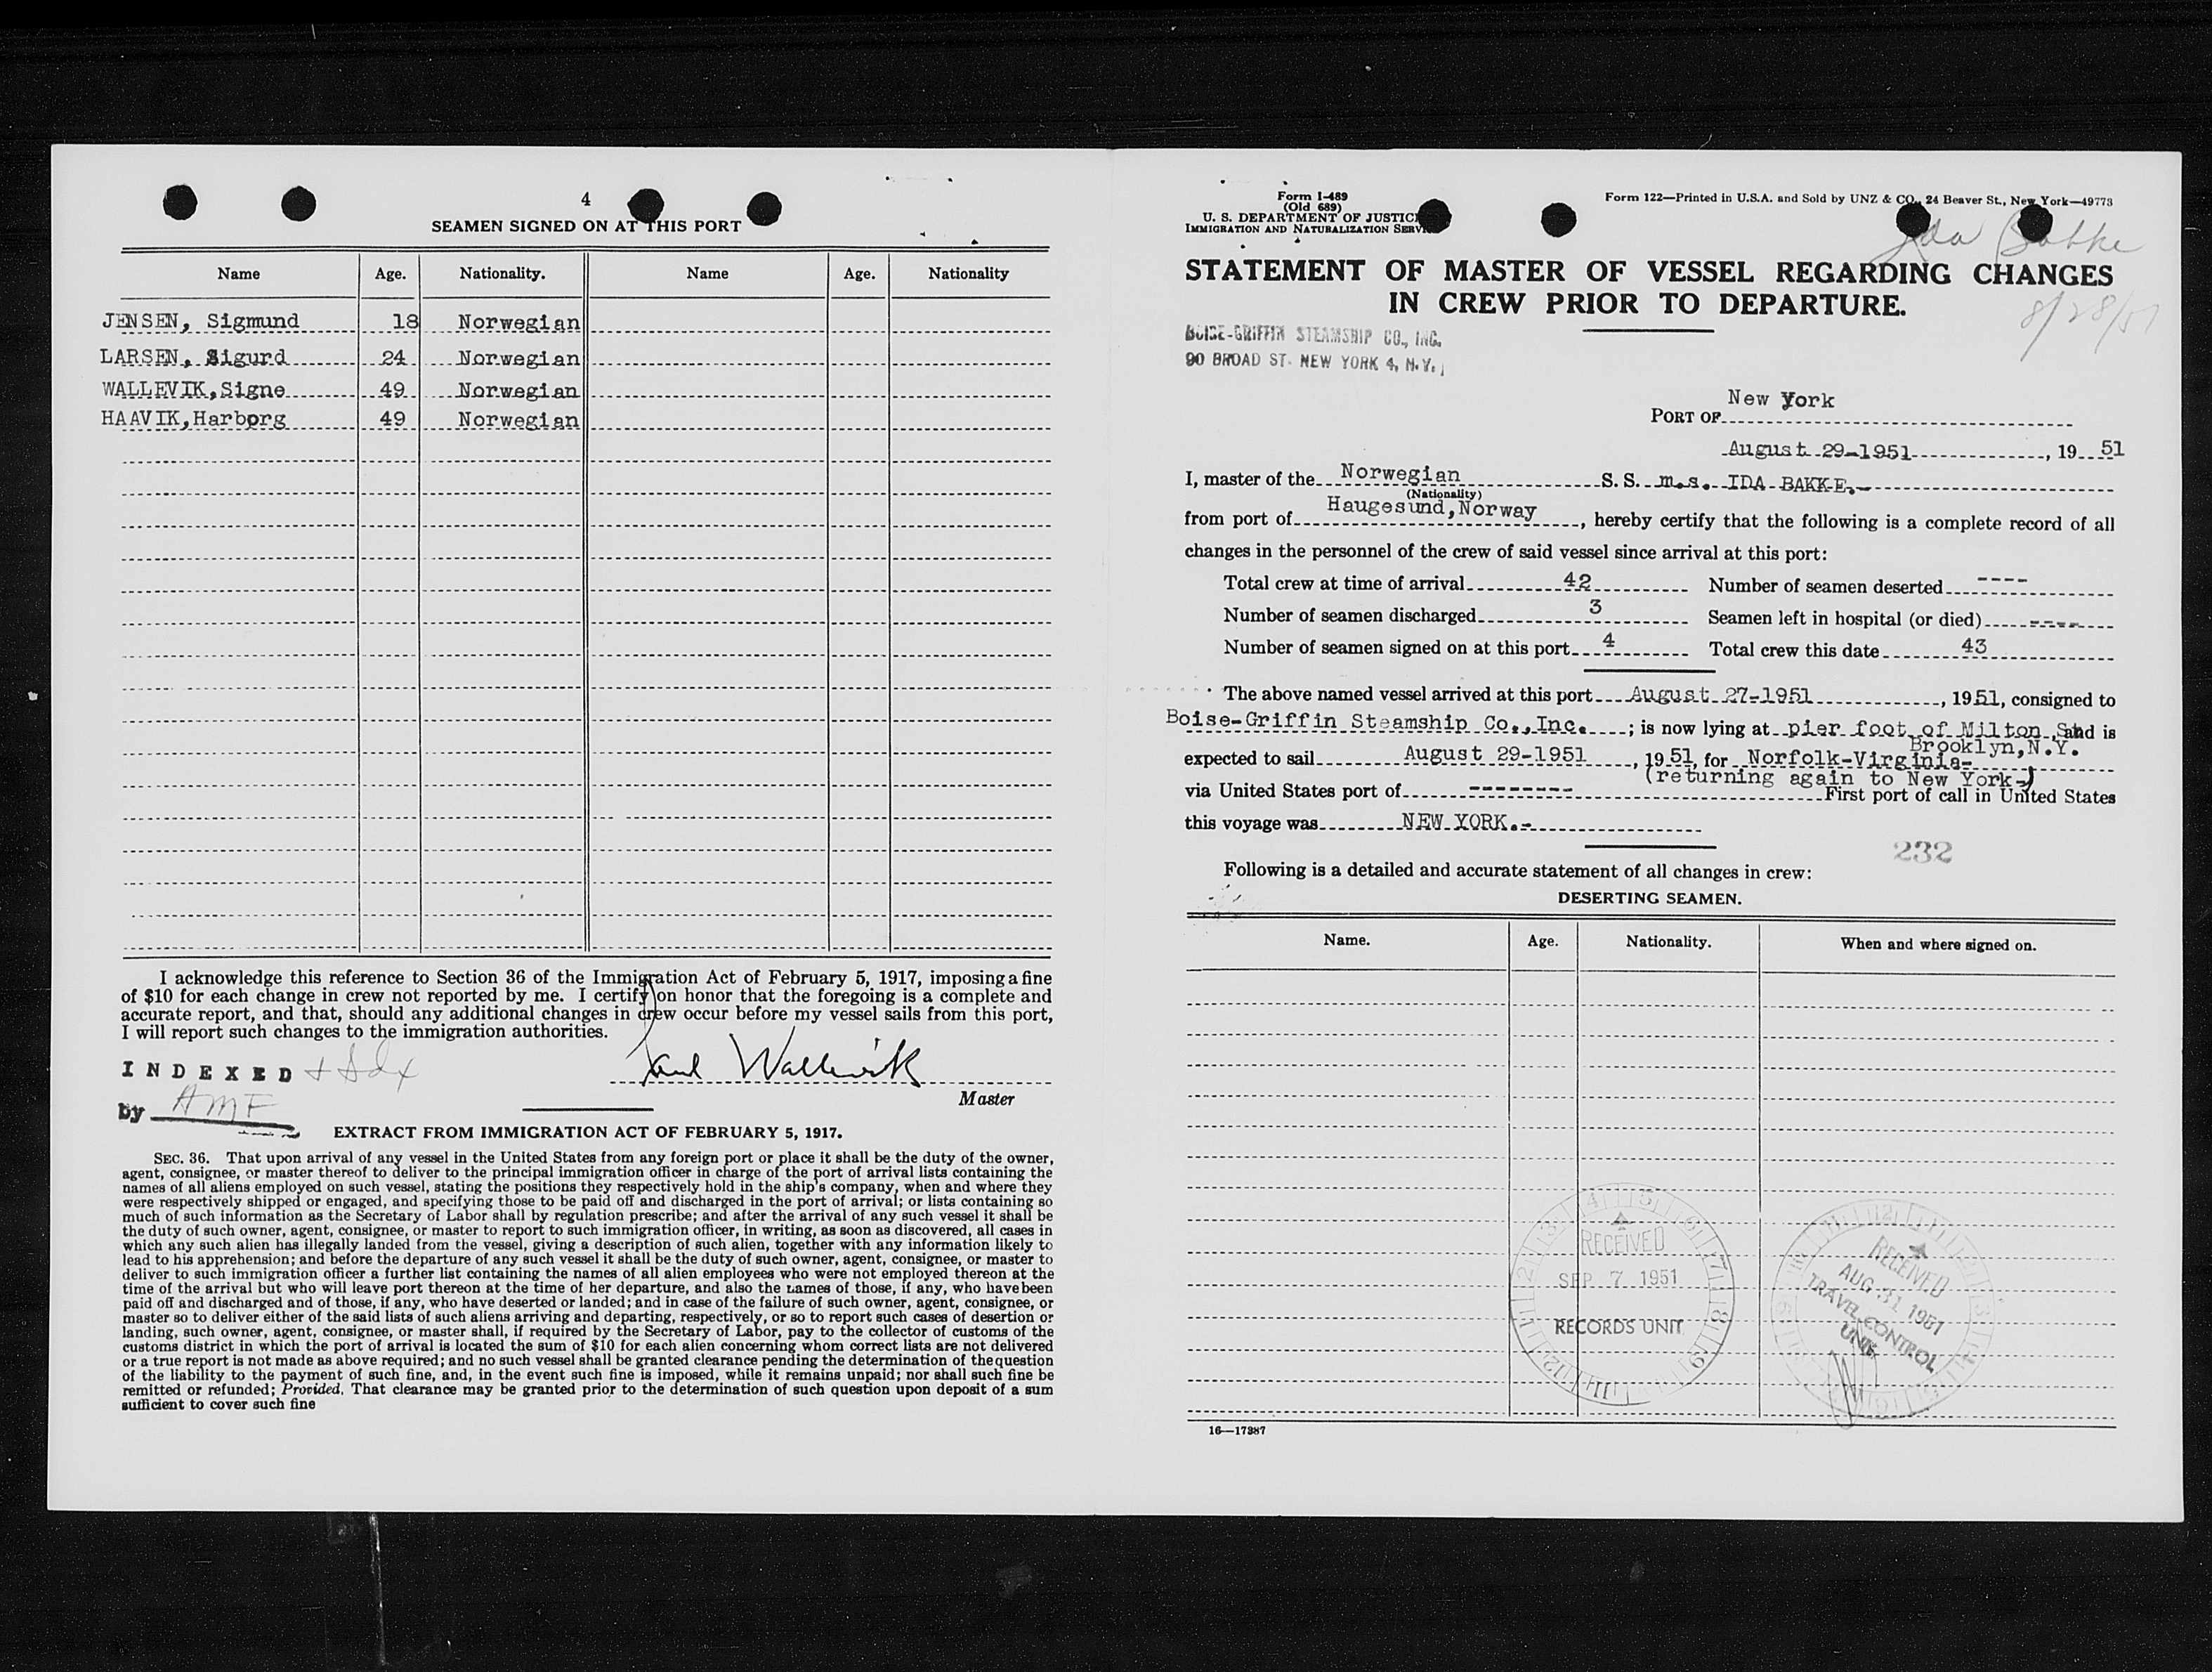 4
SEAMEN SIGNED ON AT THIS PORT
Name Age. Nationality. Name Age. Nationality
JENSEN, Sigmund 18 Norwegian
LARSEN, Sigurd 24 Norwegian
WALLEVIK,Signe 49 Norwegian
HAAVIK,Harborg 49 Norwegian
I acknowledge this reference to Section 36 of the Immigration Act of February 5, 1917, imposing a fine
of $10 for each change in crew not reported by me. I certify on honor that the foregoing is a complete and
accurate report, and that, should any additional changes in crew occur before my vessel sails from this port,
I will report such changes to the immigration authorities.
INDEXED
by AMF
Wallevik
Master
EXTRACT FROM IMMIGRATION ACT OF FEBRUARY 5, 1917.
SEC. 36. That upon arrival of any vessel in the United States from any foreign port or place it shall be the duty of the owner,
agent, consignee, or master thereof to deliver to the principal immigration officer in charge of the port of arrival lists containing the
names of all aliens employed on such vessel, stating the positions they respectively hold in the ship's company, when and where they
were respectively shipped or engaged, and specifying those to be paid off and discharged in the port of arrival; or lists containing so
much of such information as the Secretary of Labor shall by regulation prescribe; and after the arrival of any such vessel it shall be
the duty of such owner, agent, consignee, or master to report to such immigration officer, in writing, as soon as discovered, all cases in
which any such alien has illegally landed from the vessel, giving a description of such alien, together with any information likely to
lead to his apprehension; and before the departure of any such vessel it shall be the duty of such owner, agent, consignee, or master to
deliver to such immigration officer a further list containing the names of all alien employees who were not employed thereon at the
time of the arrival but who will leave port thereon at the time of her departure, and also the names of those, if any, who have been
paid off and discharged and of those, if any, who have deserted or landed; and in case of the failure of such owner, agent, consignee, or
master so to deliver either of the said lists of such aliens arriving and departing, respectively, or so to report such cases of desertion or
landing, such owner, agent, consignee, or master shall, if required by the Secretary of Labor, pay to the collector of customs of the
customs district in which the port of arrival is located the sum of $10 for each alien concerning whom correct lists are not delivered
or a true report is not made as above required; and no such vessel shall be granted clearance pending the determination of the question
of the liability to the payment of such fine, and, in the event such fine is imposed, while it remains unpaid; nor shall such fine be
remitted or refunded; Provided, That clearance may be granted prior to the determination of such question upon deposit of a sum
sufficient to cover such fine
Form I-489
(Old 689)
U. S. DEPARTMENT OF JUSTICE
IMMIGRATION AND NATURALIZATION SERVICE
Form 122—Printed in U.S.A. and Sold by UNZ & CO., 24 Beaver St., New York—49773
Ida Bakke
8/28/51
STATEMENT OF MASTER OF VESSEL REGARDING CHANGES
IN CREW PRIOR TO DEPARTURE.
BOISE-GRIFFIN STEAMSHIP CO., INC.
90 BROAD ST. NEW YORK 4, N.Y.
PORT OF New York
August 29-1951, 19 51
I, master of the Norwegian S. S. m.s. IDA BAKKE.-
(Nationality)
from port of Haugesund,Norway, hereby certify that the following is a complete record of all
changes in the personnel of the crew of said vessel since arrival at this port:
Total crew at time of arrival 42 Number of seamen deserted ----
Number of seamen discharged 3 Seamen left in hospital (or died) ----
Number of seamen signed on at this port 4 Total crew this date 43
The above named vessel arrived at this port August 27-1951, 1951, consigned to
Boise-Griffin Steamship Co.,Inc. ; is now lying at pier foot of Milton St and is
Brooklyn,N.Y.
expected to sail August 29-1951, 19 51, for Norfolk-Virginia-
(returning again to New York-)
via United States port of -------- First port of call in United States
this voyage was NEW YORK.-
232
Following is a detailed and accurate statement of all changes in crew:
DESERTING SEAMEN.
Name. Age. Nationality. When and where signed on.
RECEIVED
SEP 7 1951
RECORDS UNIT
RECEIVED
AUG 31 1951
TRAVEL CONTROL
UNIT
16—17287